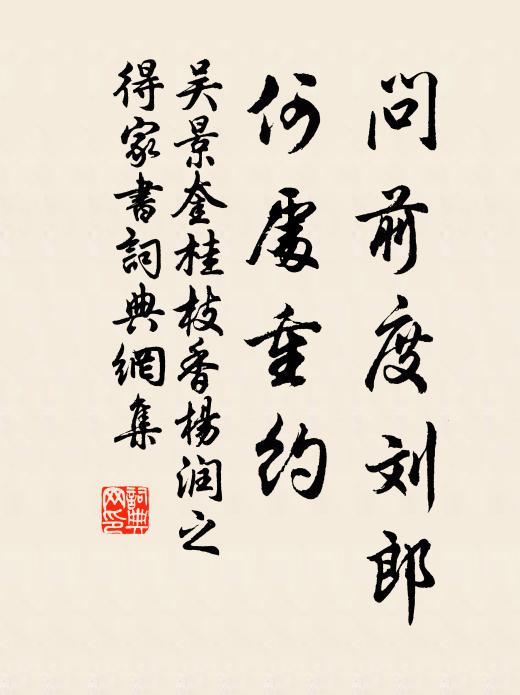 问前度刘郎
何處重约
吴景奎桂枝香楊润之
得家書詞典網集
詞典
网印